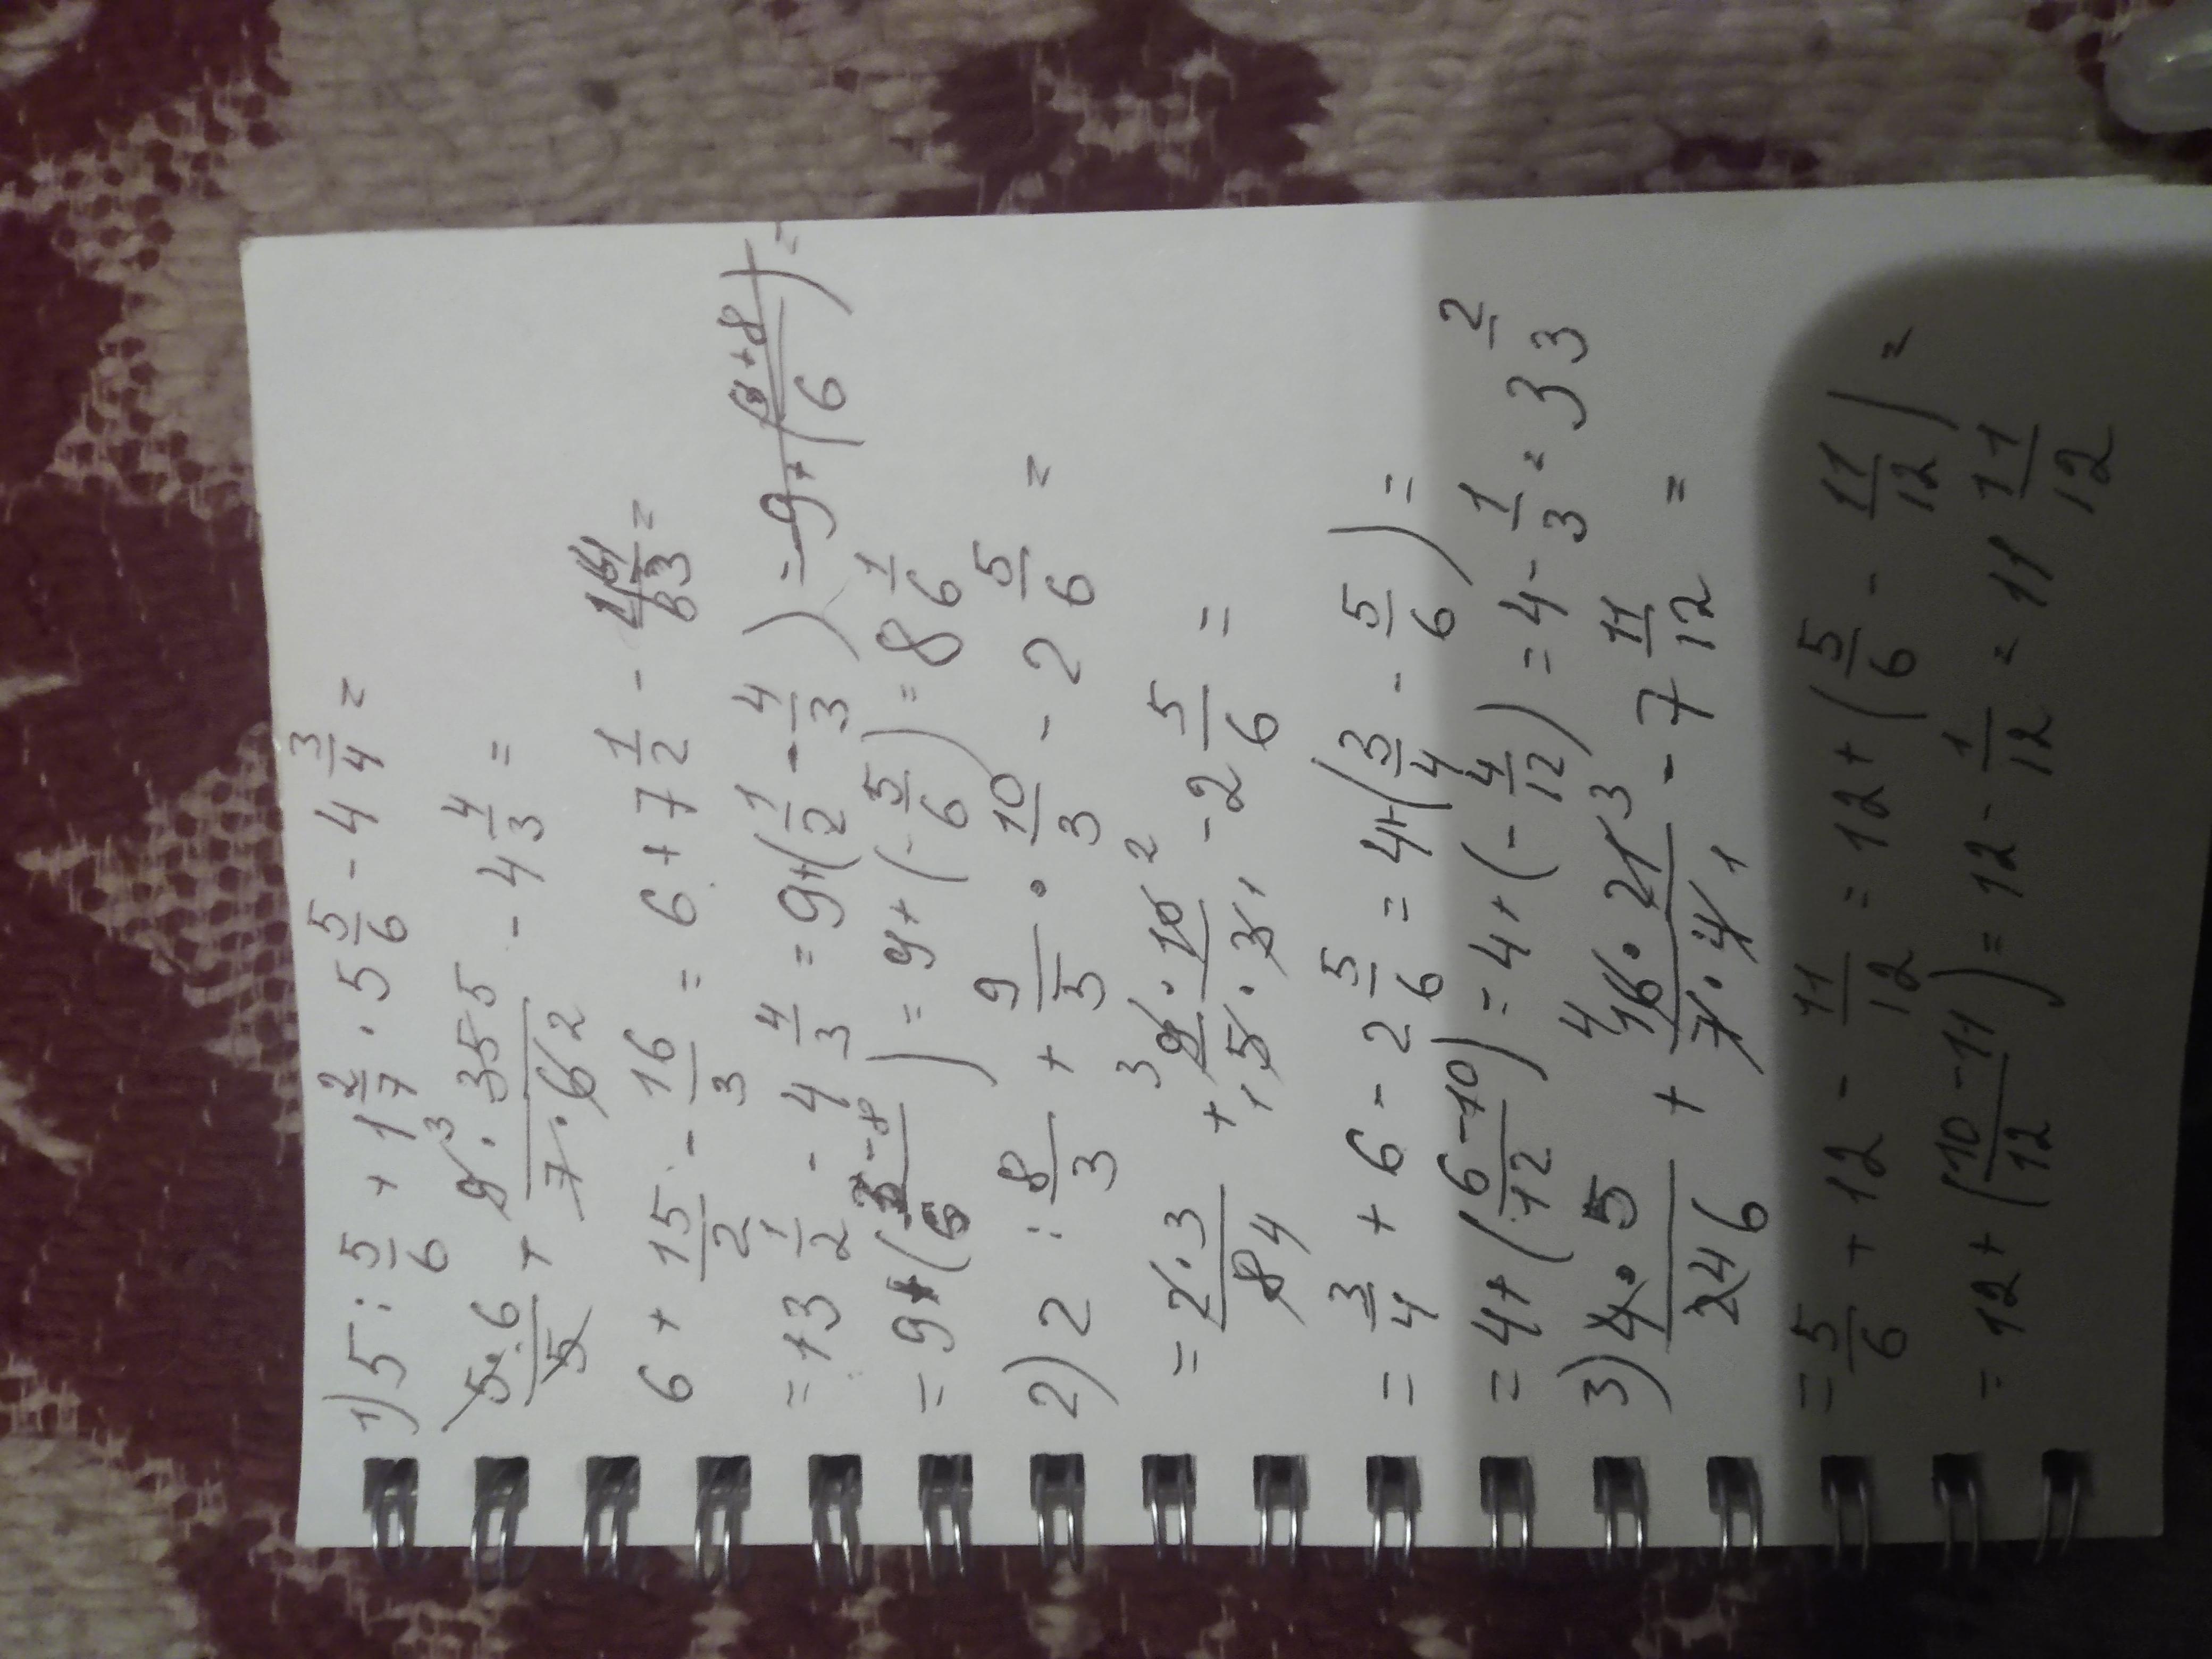 1) 5 : 5/6 + 1 2/7 · 5 5/6 - 4 3/4 =
5·6/5 + 9 3 · 35 5/7 · 6 2 - 4 4/3 =
6 + 15/2 - 16/3 = 6 + 7 1/2 - =
= 13 1/2 - 4 4/3 = 9 + (1/2 - 4/3) = 9 + ( +8/6) =
= 9 + (3-8/6) = 9 + (-5/6) = 8 1/6
2) 2 : 8/3 + 9/5 · 10/3 - 2 5/6 =
= 2·3/8 4 + 3 9 · 10 2/1 5 · 3 1 - 2 5/6 =
= 3/4 + 6 - 2 5/6 = 4 + (3/4 - 5/6) =
= 4 + (6-10/12) = 4 + (-4/12) = 4 - 1/3 = 3 2/3
3) 4·5/24 6 + 4 16 · 21 3/7 · 4 1 - 7 11/12 =
= 5/6 + 12 - 11/12 = 12 + (5/6 - 11/12) =
= 12 + (10-11/12) = 12 - 1/12 = 11 11/12